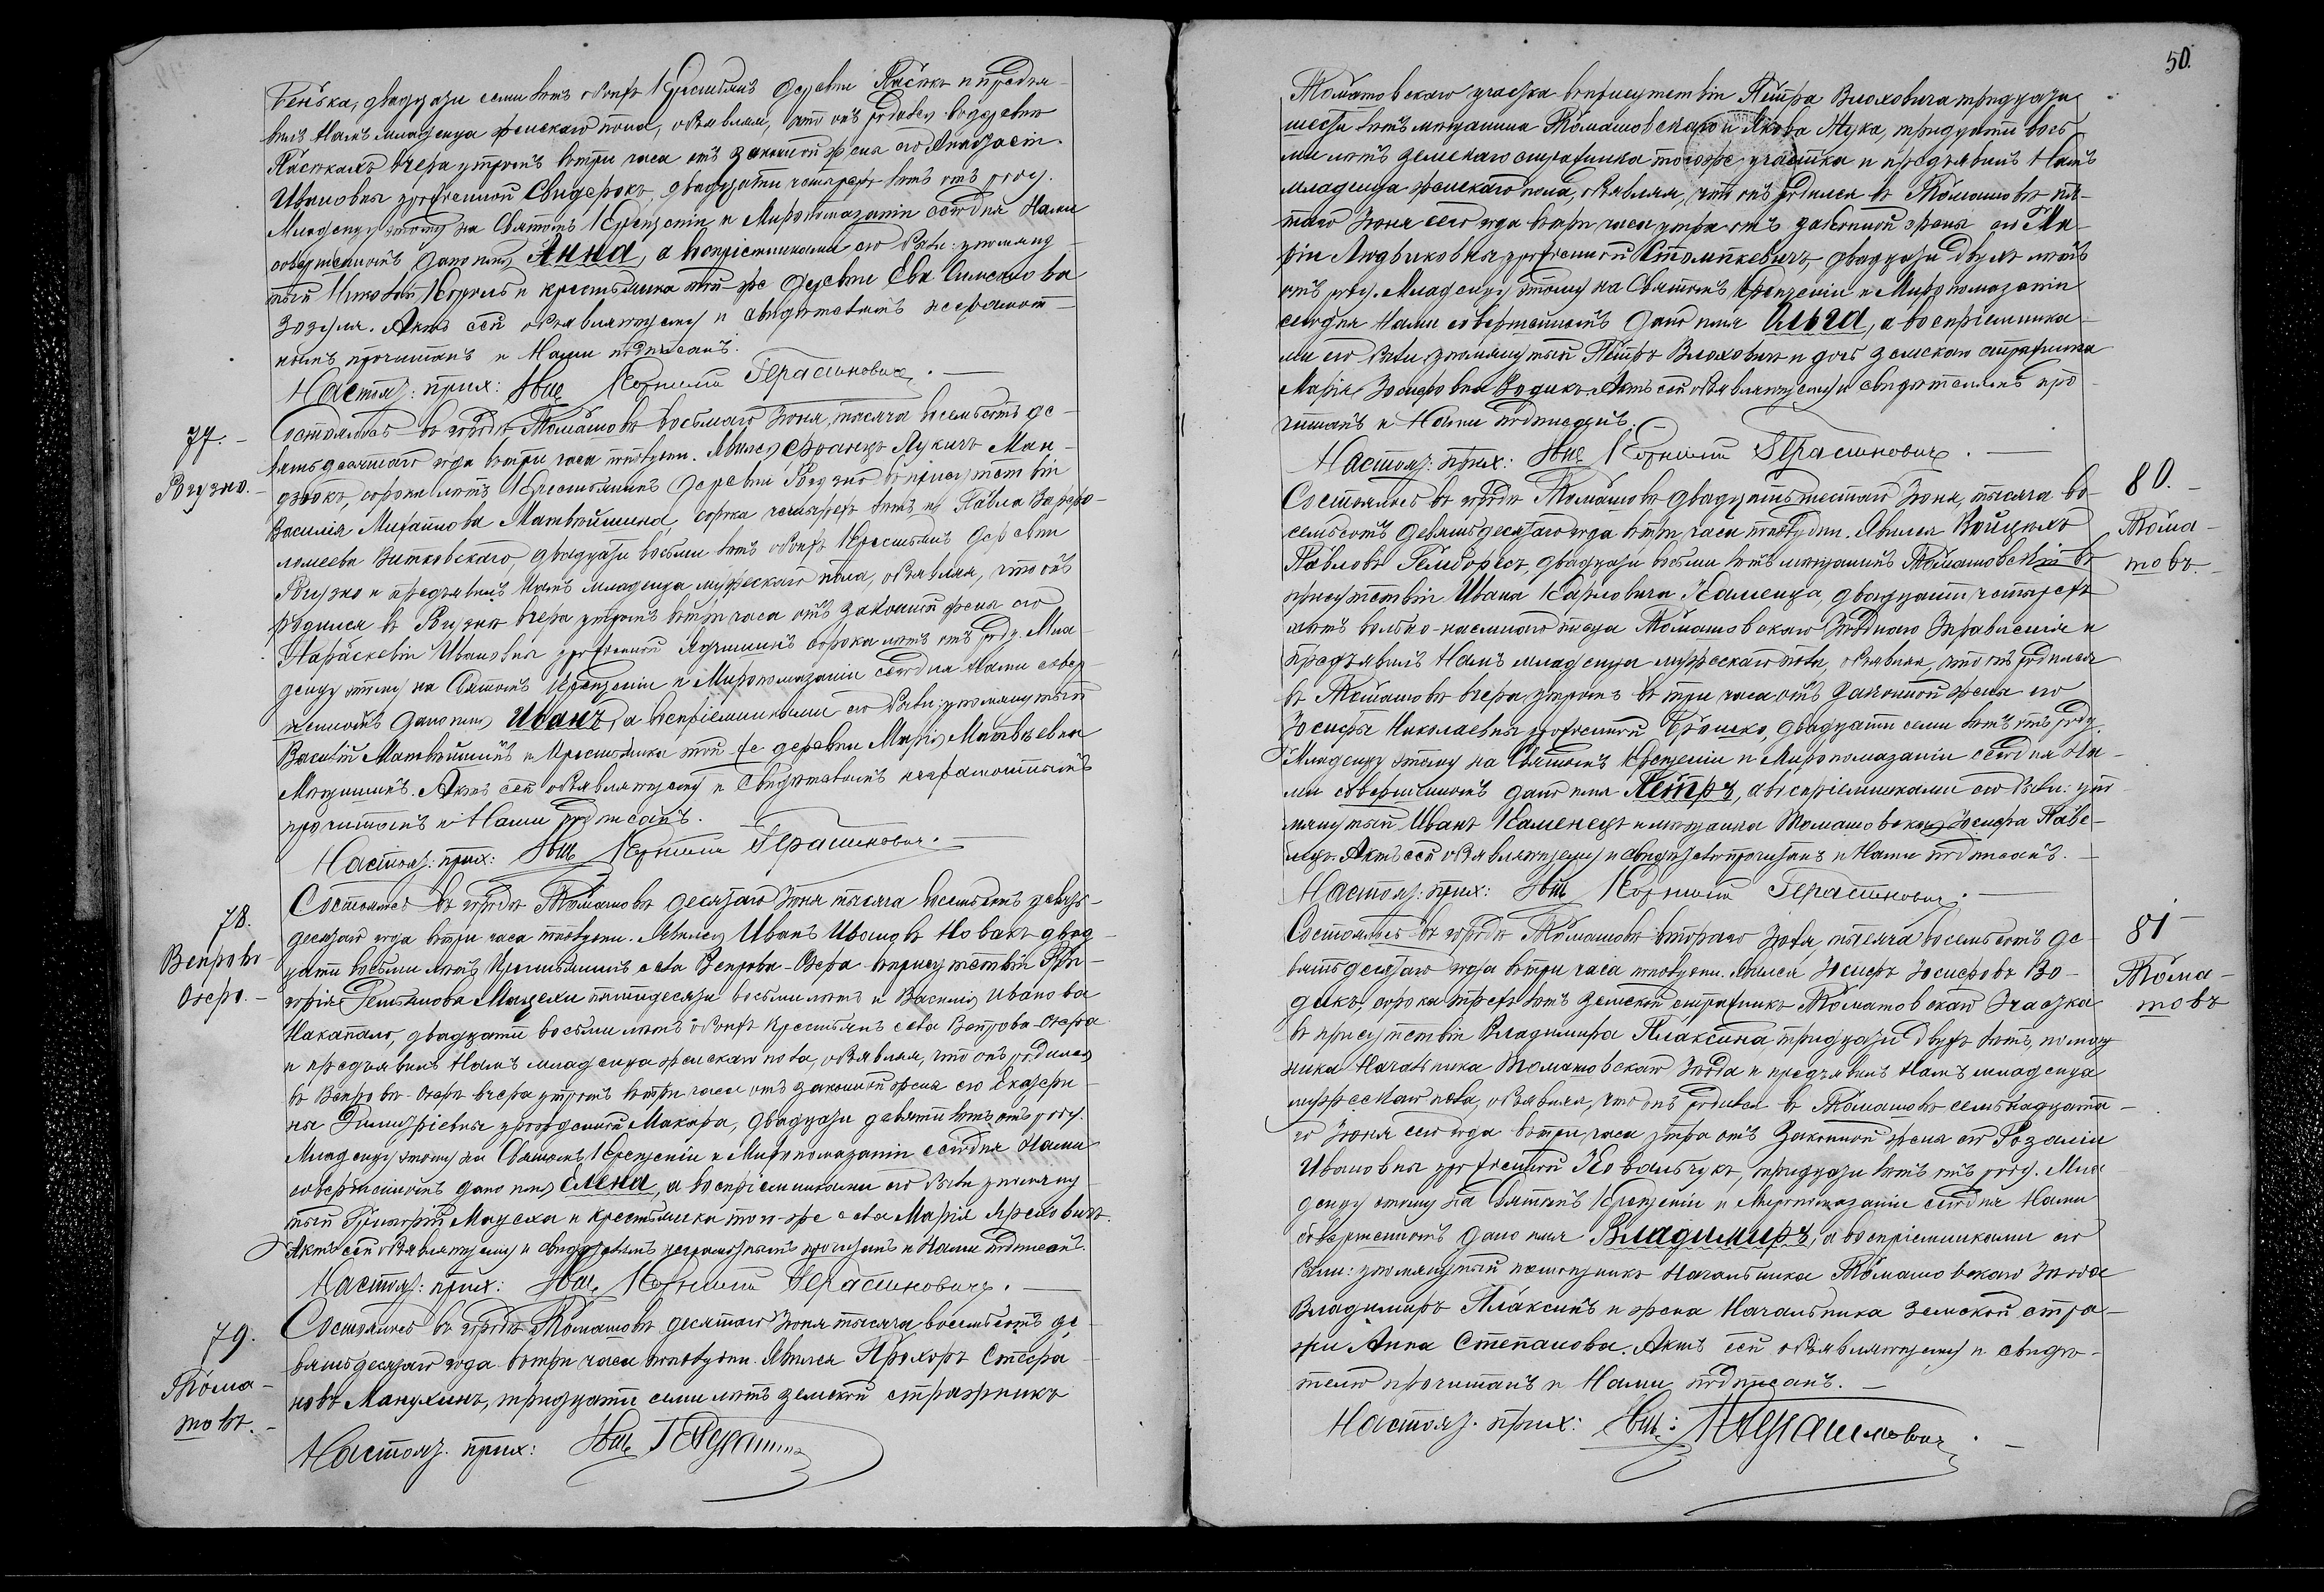 Бенька, двадцати семи лѣтъ обоихъ крестьянъ деревни Пасѣкъ и предъя-
вилъ Намъ младенца женскаго пола, объявляя, что онъ родился въ деревнѣ
Пасѣкахъ вчера утромъ въ три часа отъ законной жены его Анастасіи
Ивановны урожденной Свидерокъ, двадцати четырехъ лѣтъ отъ роду.
Младенцу этому на Святомъ Крещеніи и Миропомазаніи сегодня Нами
совершенномъ дано имя Анна, а воспріемниками его были: упомяну-
тый Николай и крестьянка той же деревни Ева
Зозуля. Актъ сей объявляющему и свидѣтелямъ неграмот-
нымъ прочитанъ и Нами подписанъ.
Настоят: прих: Свщ Корнилій Герасимовичъ.
77.
Рогузно.
Состоялось въ городѣ Томашовѣ восьмаго Іюня, тысяча восемьсотъ де-
вяностодесятаго года въ три часа пополудни. Явился Францъ Лукичъ Ман-
дзюкъ, сорока лѣтъ крестьянинъ деревни Рогузно въ присутствіи
Василія Михайлова Матвѣйшина, сорка четырехъ лѣтъ и Павла Варфо-
ломеева Витковскаго, двадцати восьми лѣтъ обоихъ крестьянъ деревни
Рогузно и предъявилъ Намъ младенца мужескаго пола, объявляя, что онъ
родился въ Рогузнѣ вчера утромъ въ три часа отъ законной жены его
Параскевіи Ивановны урожденной сорока лѣтъ отъ роду. Мла-
денцу этому на Святомъ Крещеніи и Миропомазаніи сегодня Нами совер-
шенномъ дано имя Иванъ, а воспріемниками его были: упомянутый
Василій Матвѣйшинъ и крестьянка той-же деревни Марія Матвѣевна
Актъ сей объявляющему и свидѣтелямъ неграмотнымъ
прочитанъ и Нами подписанъ.
Настоят: прих: Свщ Корнилій Герасимовичъ.
78.
Вепрово-
Озеро.
Состоялось въ городѣ Томашовѣ десятаго Іюня тысяча восемьсотъ девять-
десятаго года въ три часа пополудни. Явился Иванъ Ивановъ Новакъ двад-
цати восьми лѣтъ крестьянинъ села Вепрова-Озера въ присутствіи Гри-
горія Мацехи пятидесяти восьми лѣтъ и Василія Иванова
двадцати восьми лѣтъ обоихъ крестьянъ села Вепрова-Озера
и предъявилъ Намъ младенца женскаго пола, объявляя, что онъ родился
въ Вепровѣ-Озерѣ вчера утромъ въ три часа отъ законной жены его Екатери-
ны Димитріевны урожденной Макара, двадцати девяти лѣтъ отъ роду.
Младенцу этому на Святомъ Крещеніи и Миропомазаніи сегодня Нами
совершенномъ дано имя Елена, а воспріемниками его были упомяну-
тый Григорій Мацеха и крестьянка того-же села Марія
Актъ сей объявляющему и свидѣтелямъ неграмотнымъ прочитанъ и Нами подписанъ.
Настоят: прих: Свщ Корнилій Герасимовичъ.
79.
Тома-
шовъ.
Состоялось въ городѣ Томашовѣ десятаго Іюня тысяча восемьсотъ де-
вятьдесятаго года въ три часа пополудни. Явился Прохоръ Стефа-
новъ Манухинъ, тридцати семи лѣтъ земскій стражникъ
Настоят. прих: Свщ
50.
Томашовскаго участка въ присутствіи Петра Влоховича тридцати
шести лѣтъ мѣщанина Томашовскаго и Якова Жука, тридцати вось-
ми лѣтъ земскаго стражника того же участка и предъявилъ Намъ
младенца женскаго пола, объявляя, что онъ родился въ Томашовѣ пя-
таго Іюня сего года въ три часа утра отъ законной жены его Ма-
ріи Людвиковны урожденной двадцати двухъ лѣтъ
отъ роду. Младенцу этому на Святомъ Крещеніи и Миропомазаніи
сегодня Нами совершенномъ дано имя Ольга, а воспріемника-
ми его были упомянутый Петръ Влоховичъ и дочь земскаго стражника
Марія Іосифовна Водикъ. Актъ сей объявляющему и свидѣтелямъ про-
читанъ и Нами подписанъ.
Настоят: прих: Свщ Корнилій Герасимовичъ.
80.
Тома-
шовъ.
Состоялось въ городѣ Томашовѣ двадцать шестаго Іюня, тысяча во-
семьсотъ девятьдесятаго года въ три часа пополудни. Явился Войцехъ
Павловъ двадцати восьми лѣтъ мѣщанинъ Томашовскій въ
присутствіи Ивана Карловича Каменца, двадцати четырехъ
лѣтъ вольно-наемнаго писца Томашовскаго Уѣзднаго Управленія и
предъявилъ Намъ младенца мужескаго пола, объявляя, что онъ родился
въ Томашовѣ вчера утромъ въ три часа отъ законной жены его
Іосифы Николаевны урожденной двадцати семи лѣтъ отъ роду.
Младенцу этому на Святомъ Крещеніи и Миропомазаніи сегодня На-
ми совершенномъ дано имя Петръ, а воспріемниками его были: упо-
мянутый Иванъ Каменецъ и мѣщанка Томашовская Іосифа
Актъ сей объявляющему и свидѣтелю прочитанъ и Нами подписанъ.
Настоят: прих: Свщ Корнилій Герасимовичъ.
81
Тома-
шовъ
Состоялось въ городѣ Томашовѣ втораго Іюля, тысяча восемьсотъ де-
вятьдесятаго года въ три часа пополудни. Явился Іосифъ Іосифовъ Во-
дикъ, сорока трехъ лѣтъ земскій стражникъ Томашовскаго Участка
въ присутствіи Владимира Плаксина тридцати двухъ лѣтъ, помощ-
ника Начальника Томашовскаго Уѣзда и предъявилъ Намъ младенца
мужескаго пола, объявляя, что онъ родился въ Томашовѣ семьнадцата-
го Іюня сего года въ три часа утра отъ законной жены его Розаліи
Ивановны урожденной Ковальчукъ, тридцати лѣтъ отъ роду. Мла-
денцу этому на Святомъ Крещеніи и Миропомазаніи сегодня Нами
совершенномъ дано имя Владимиръ, а воспріемниками его
были: упомянутый помощникъ Начальника Томашовскаго Уѣзда
Владимиръ Плаксинъ и жена Начальника Земской стра-
жи Анна Степанова. Актъ сей объявляющему и свидѣ-
телю прочитанъ и Нами подписанъ.
Настоят. прих: Свщ: